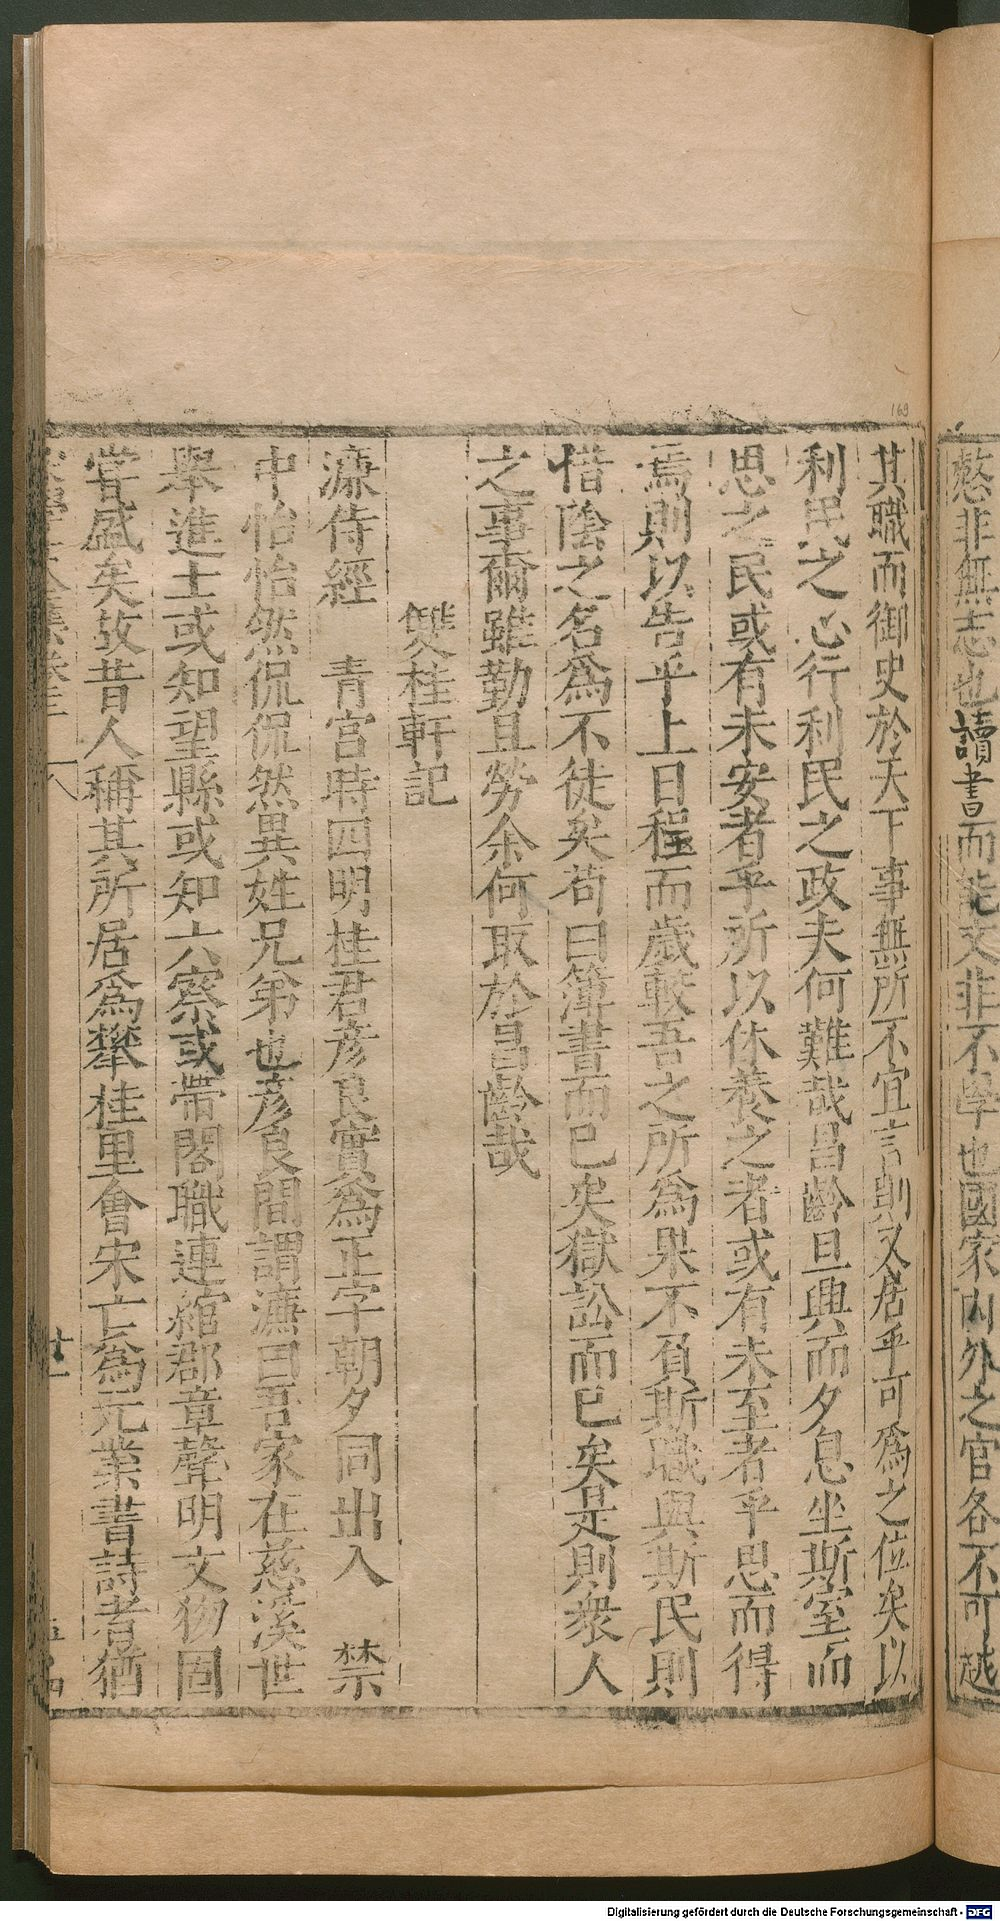 慤非無志也讀書而能文非不學也國家内外之官各不可越
其職而御史於天下事無所不宜言則又居乎可爲之位矣以
利民之心行利民之政夫何難哉昌齡旦興而夕息坐斯室而
思之民或有未安者乎所以休養之者或有未至者乎思而得
焉則以告乎上日程而歲較吾之所爲果不負斯職與斯民則
惜陰之名爲不徒矣苟曰簿書而已矣獄訟而已矣是則衆人
之事爾雖勤且勞余何取於昌齡哉
雙桂軒記
濂侍經 青宮時四明桂君彥良實爲正字朝夕同出入 禁
中怡怡然侃侃然異姓兄弟也彥良間謂濂曰吾家在慈溪世
舉進士或知望縣或知六察或帶閣職連綰郡章聲明文物固
嘗盛矣故昔人稱其所居爲攀桂里會宋亡爲元業書詩者猶
卷三
廿一
169
Digitalisierung gefördert durch die Deutsche Forschungsgemeinschaft - DFG